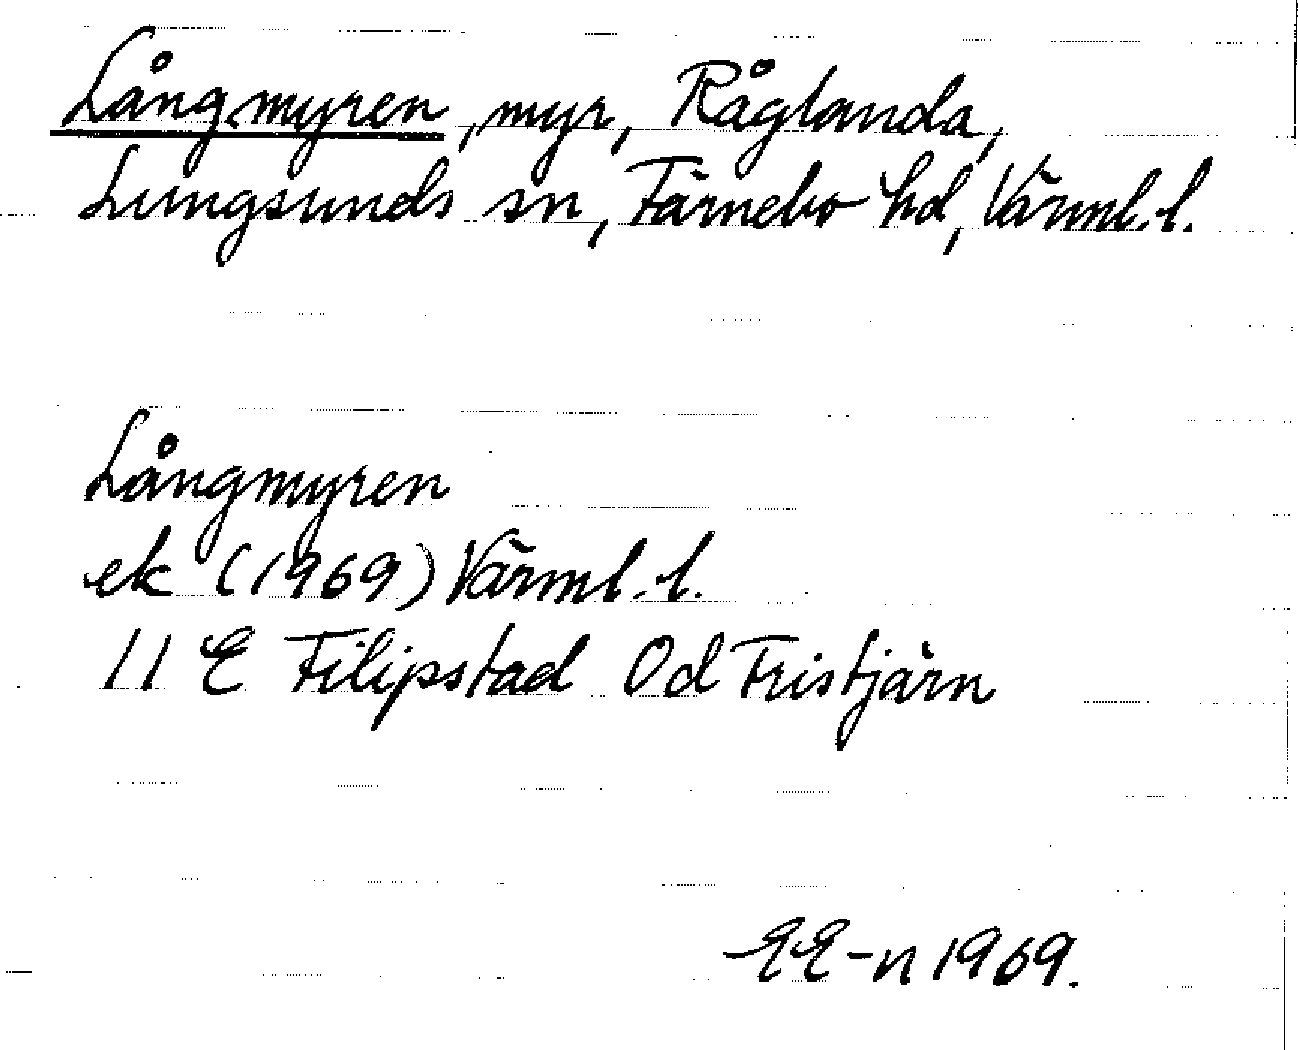 Långmyren, myr, Råglanda,
Lungsunds sn, Färnebo hd, Värml. l.
Långmyren
ek (1969) Värml. l.
11 E Filipstad 0d Tristjärn
EE-n 1969.